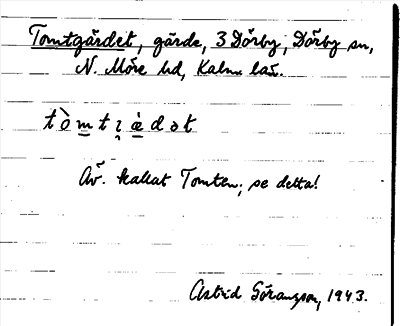 Tomtgärdet, gärde, 3 Dörby, Dörby sn,
N. Möre hd, Kalm. län.
tò̀mtɿæ̀dət
Äv. kallat Tomten; se detta!
Astrid Göransson, 1943.